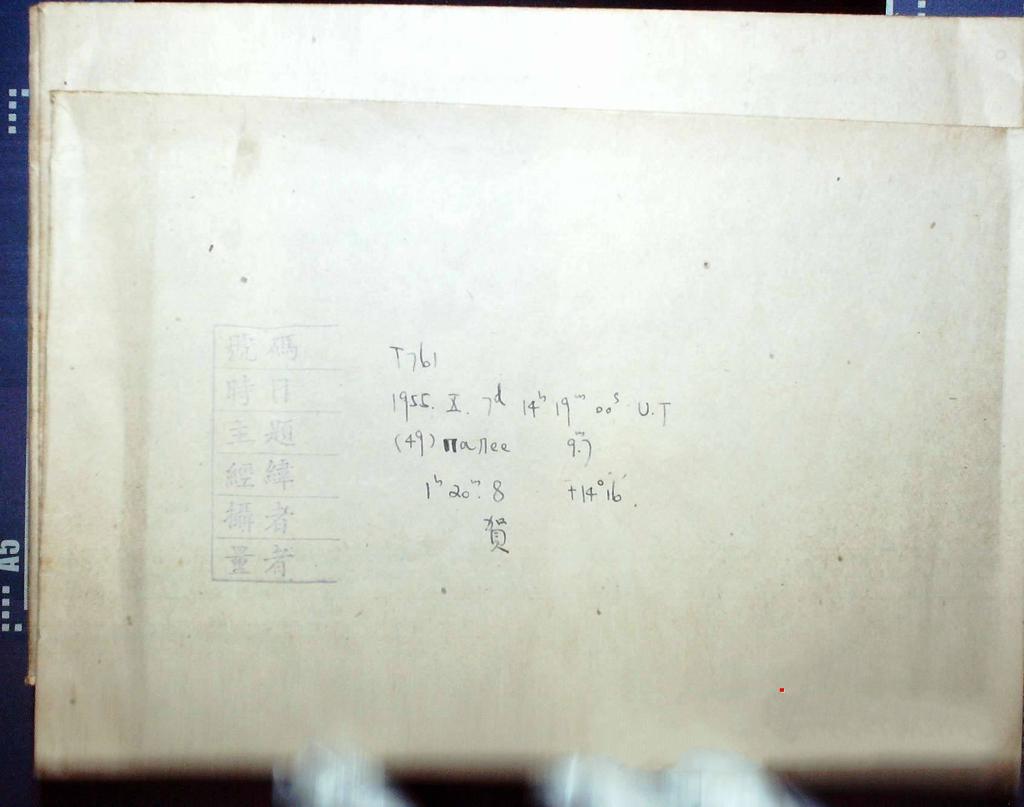 號碼
時日
主題
經緯
攝者
量者
T761
1955. X. 7d 14h 19m 00s U.T
(49) Палее 9.m7
1h 20m.8 +14°16′.
賀
A5